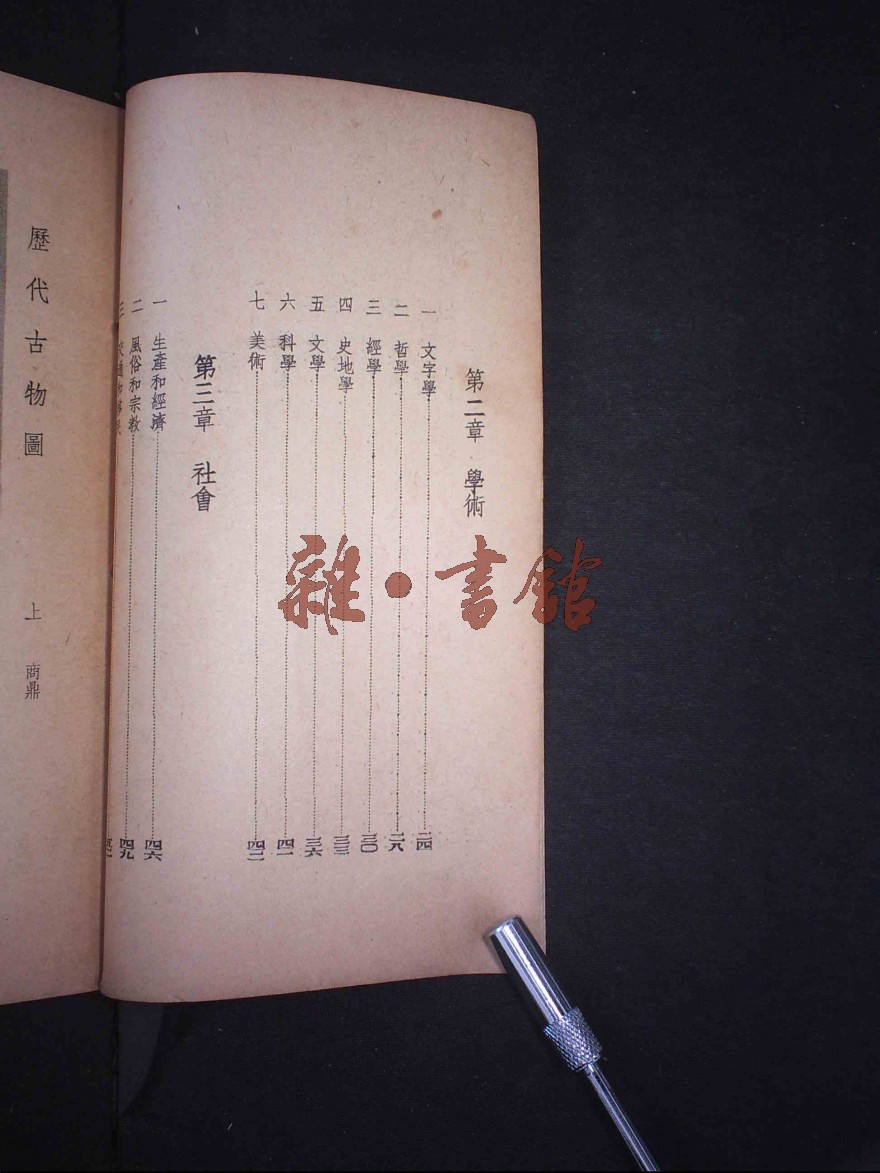 第二章 學術
一 文字學 二四
二 哲學 二八
三 經學 三〇
四 史地學 三三
五 文學 三六
六 科學 四一
七 美術 四二
第三章 社會
一 生產和經濟 四六
二 風俗和宗教 四九
三
歷代古物圖 上 商鼎
雜·書館